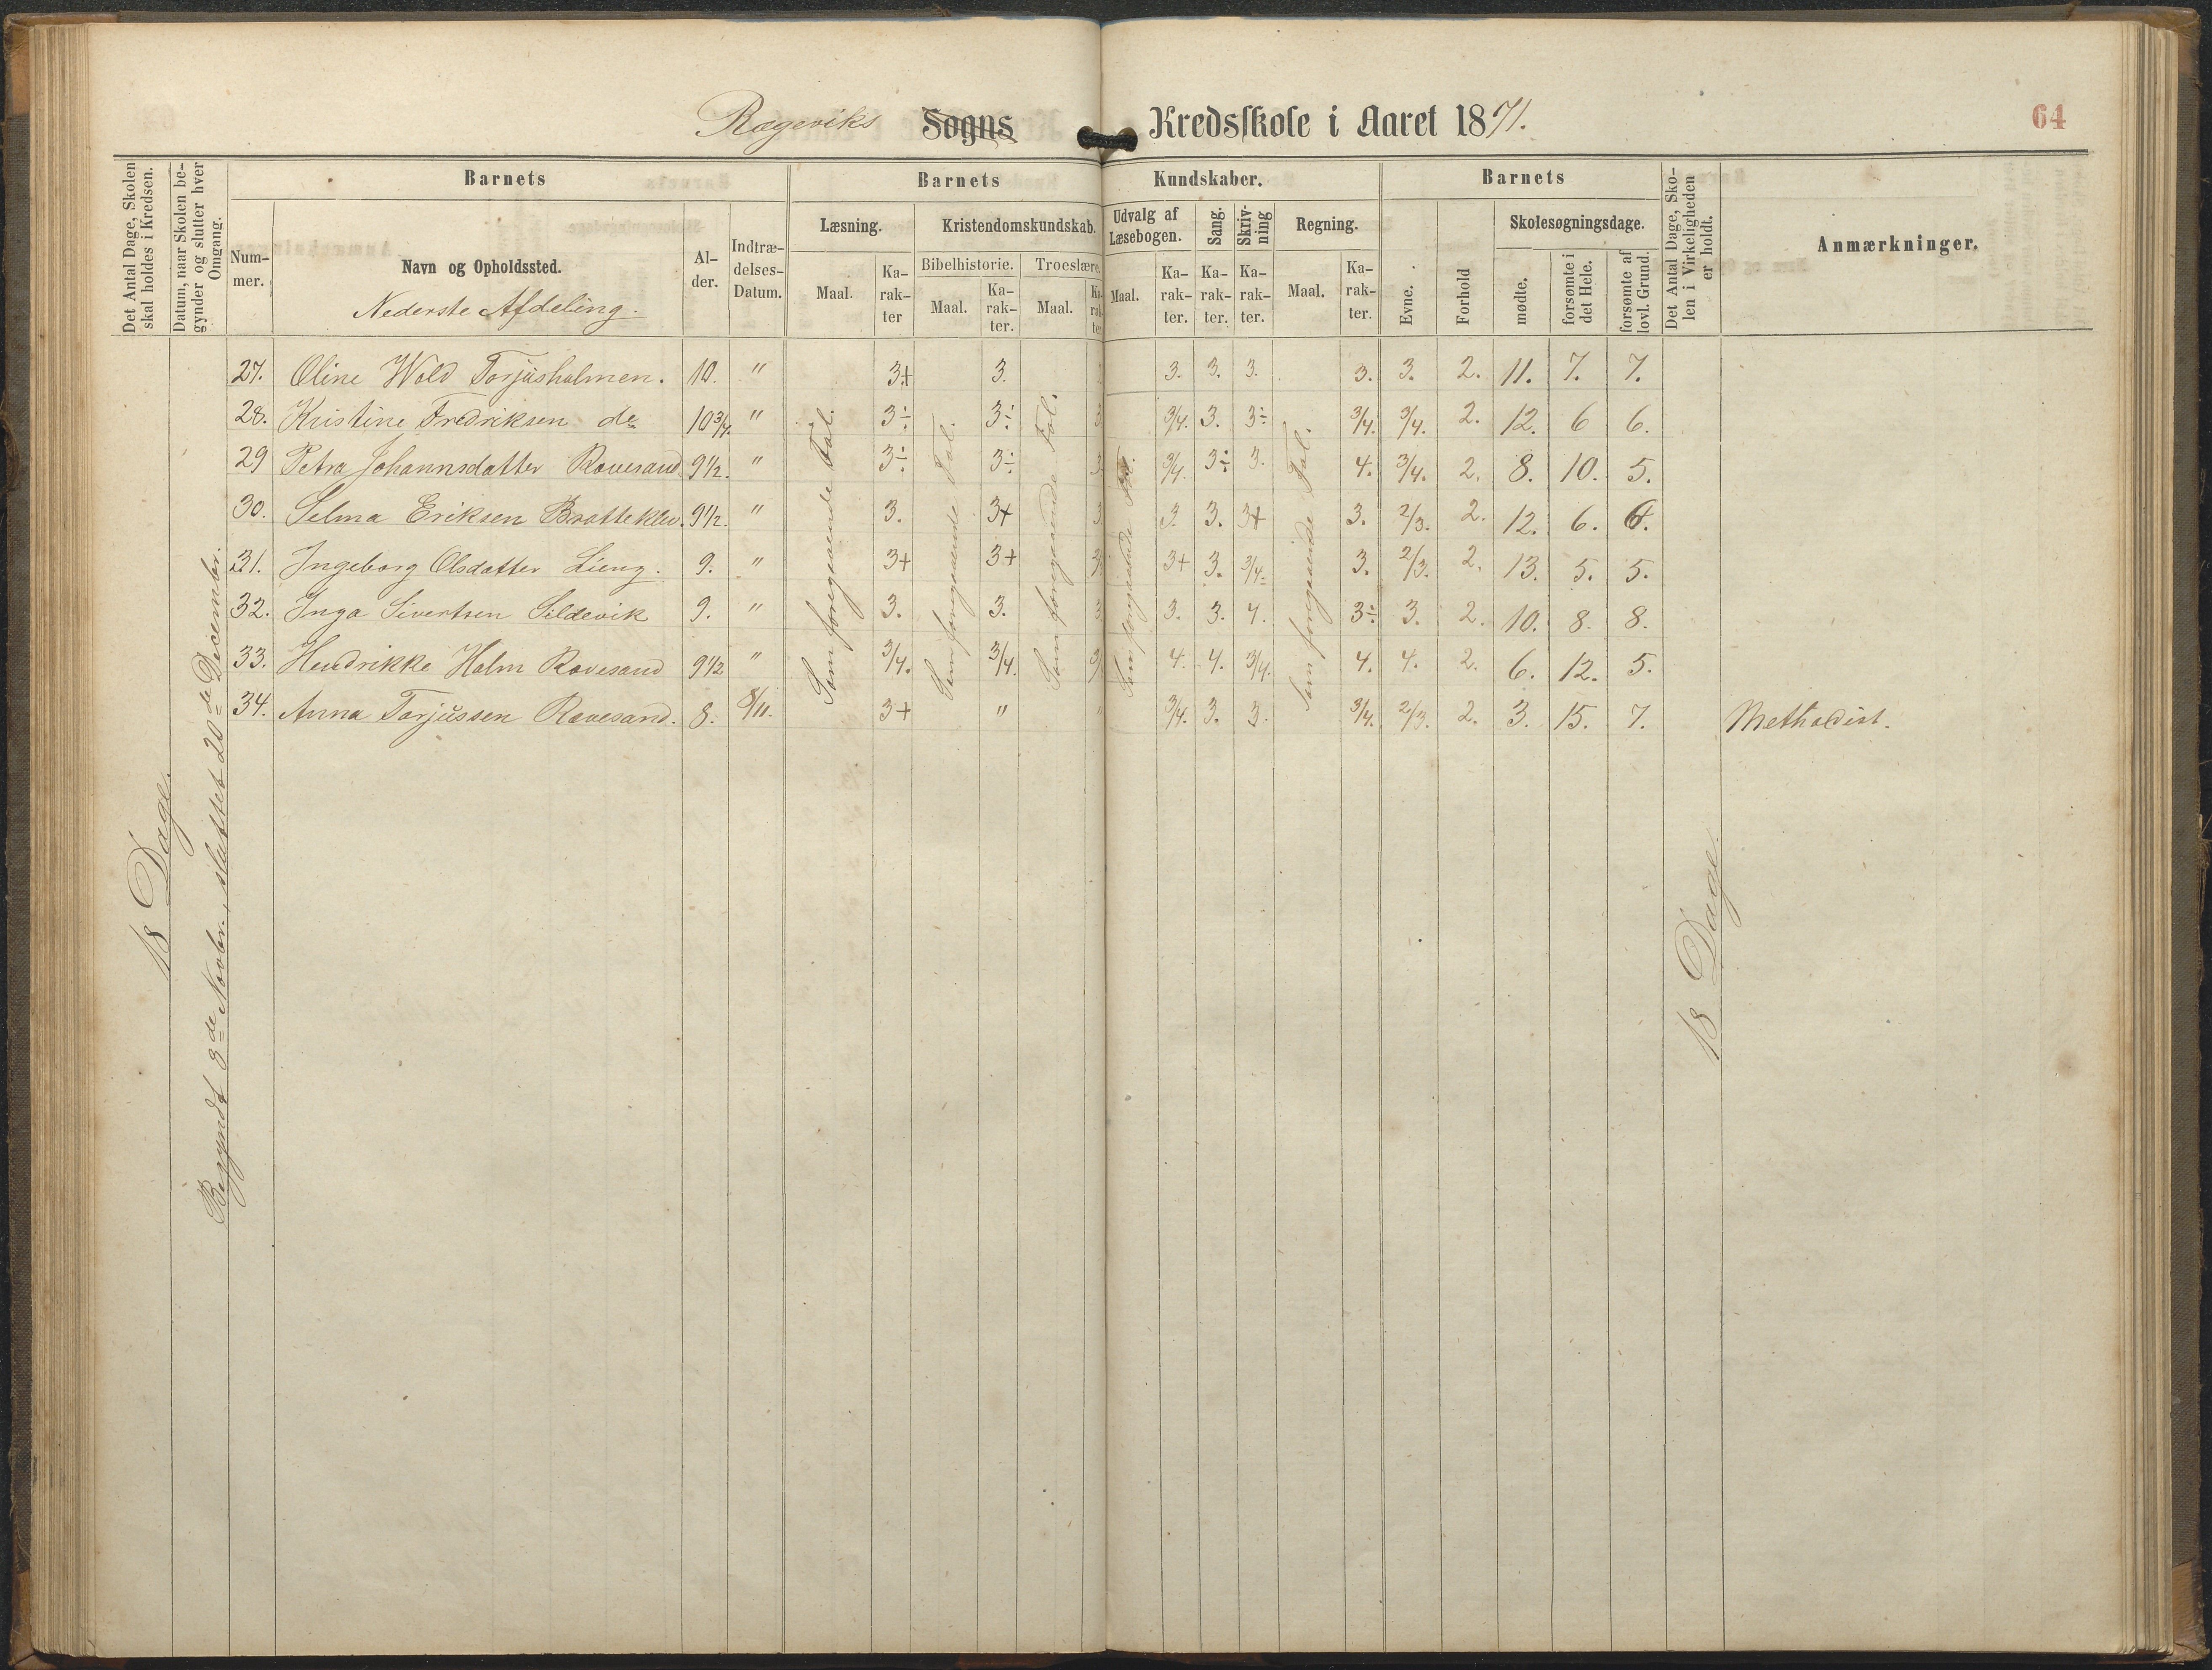 Rægeviks Sogns Kredsskole i Aaret 1871.
64
Det Antal Dage, Skolen skal holdes i Kredsen.
Datum, naar Skolen begynder og slutter hver Omgang.
Barnets
Barnets Kundskaber.
Barnets
Det Antal Dage, Skolen i Virkeligheden er holdt.
Anmærkninger.
Nummer.
Navn og Opholdssted.
Nederste Afdeling.
Alder.
Indtrædelses-Datum.
Læsning.
Kristendomskundskab.
Udvalg af Læsebogen.
Sang.
Skrivning
Regning.
Evne.
Forhold
Skolesøgningsdage.
Bibelhistorie.
Troeslære.
Maal.
Karakter
Maal.
Karakter.
Maal.
Karakter
Maal.
Karakter.
Karakter.
Karakter.
Maal.
Karakter.
mødte.
forsømte i det Hele.
forsømte af lovl. Grund.
27. Oline Wold Torjusholmen. 10. " 3+ 3. 3. 3. 3. 3. 3. 2. 11. 7. 7.
28. Kristine Fredriksen do 10 3/4. " 3÷ 3÷ 3 3/4. 3. 3÷ 3/4. 3/4. 2. 12. 6 6.
29 Petra Johannsdatter Rævesand 9 1/2. " 3÷ 3÷ 3 3/4. 3÷ 3. 4. 3/4. 2. 8. 10. 5.
30. Selma Eriksen Bratteklev. 9 1/2. " 3. 3+ 3 3. 3. 3+ 3. 2/3. 2. 12. 6. 6.
31. Ingeborg Olsdatter Lieng. 9. " 3+ 3+ 3 3+ 3. 3/4. 3. 2/3. 2. 13. 5. 5.
32. Inga Sivertsen Sildevik 9. " 3. 3. 3 3. 3. 4. 3÷ 3. 2. 10. 8. 8.
33. Hendrikke Holm Rævesand 9 1/2 " 3/4. 3/4. 3/ 4. 4. 3/4. 4. 4. 2. 6. 12. 5.
34. Anna Torjussen Rævesand. 8. 8/11. 3+ " " 3/4. 3. 3. 3/4. 2/3. 2. 3. 15. 7. Methodist.
18 Dage.
Begyndt 3de Novbr. sluttet 20de December.
Som foregaaende Fol.
Som foregaaende Fol.
Som foregaaende Fol.
Som foregaaende
Som foregaaende Fol.
18 Dage.